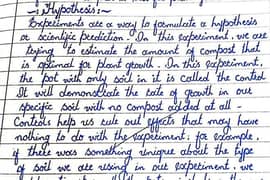 -: Hypothesis:-
Experiments are a way to formulate a hypothesis
or scientific prediction. In this experiment, we are
trying to estimate the amount of compost that
is optimal for plant growth. In this experiment,
the pot with only soil in it is called the control.
It will demonstrate the rate of growth in our
specific soil with no compost added at all-
Controls help us rule out effects that may have
nothing to do with the experiment, for example,
if there was something unique about the type
of soil we are using in our experiment, we